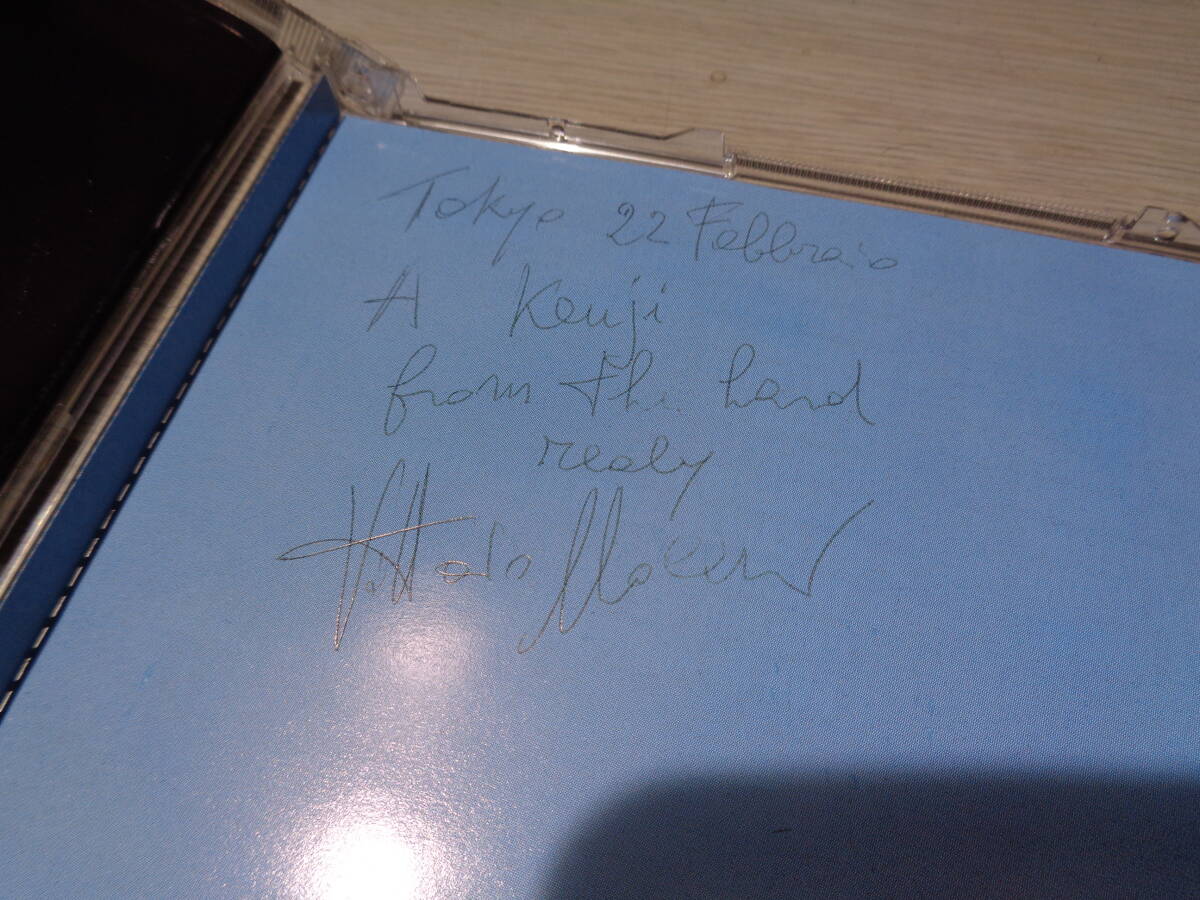 Tokyo 22 Febbraio
A Kenji
from the hand
realy